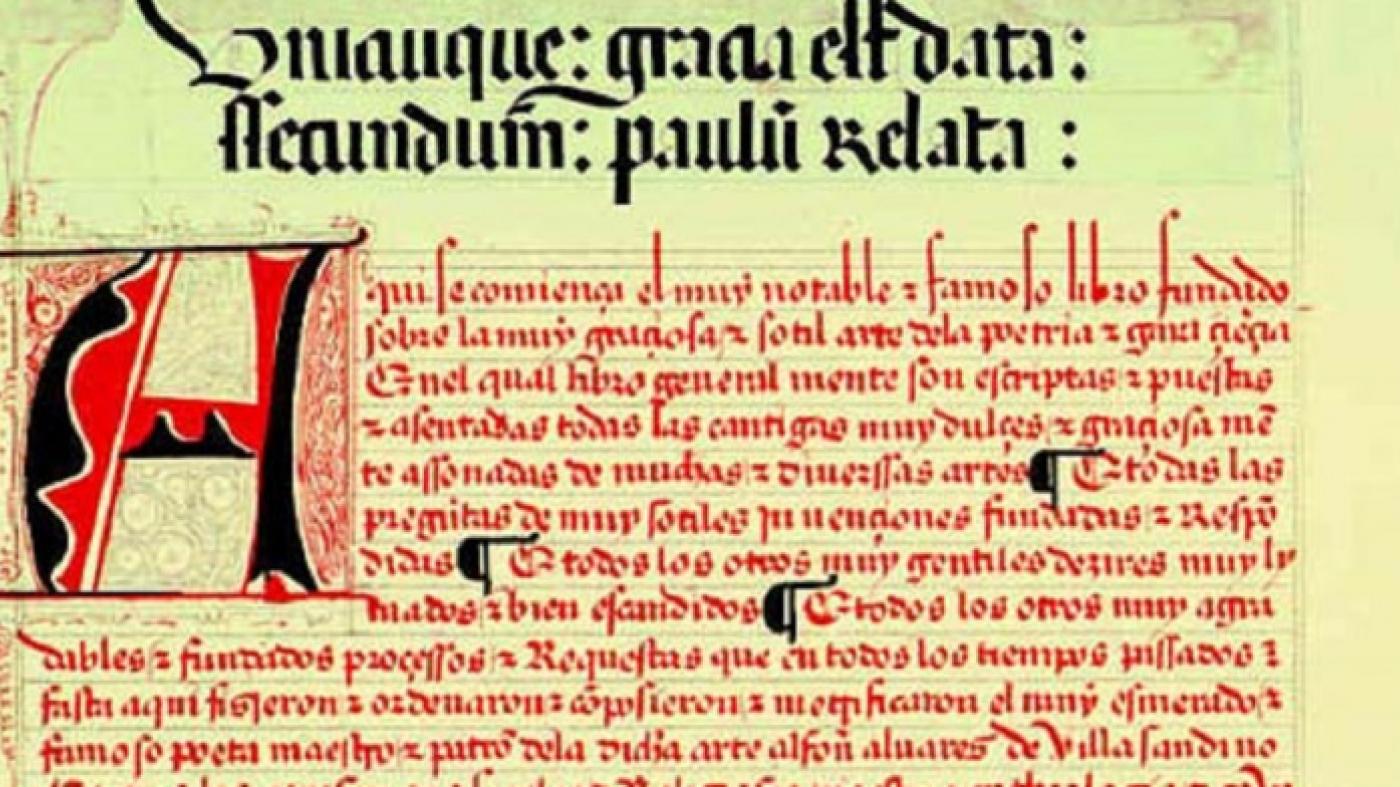 Vnicuique: gracia est data:
ssecundum̃: paulũ Relata :
Aqui se comiença el muy notable ⁊ famoso libro fundado
sobre la muy graçiosa ⁊ sotil arte dela poetria ⁊ gaya çiẽçia
En el qual libro general mente son escriptas ⁊ puestas
⁊ asentadas todas las cantigas muy dulçes ⁊ graçiosa mẽ
te assonadas de muchas ⁊ diuerssas artes ¶ E todas las
preguntas de muy sotiles jnuençiones fundadas ⁊ Respõ
didas ¶ E todos los otros muy gentiles dezires muy ly
mados ⁊ bien escandidos ¶ E todos los otros muy agra
dables ⁊ fundados proçessos ⁊ Requestas que en todos los tiempos passados ⁊
fasta aqui fisieron ⁊ ordenaron ⁊ cõpusieron ⁊ metrificaron el muy esmerado ⁊
famoso poeta maestro ⁊ patrõ dela dicha arte alfoñ aluares de Villa sandino